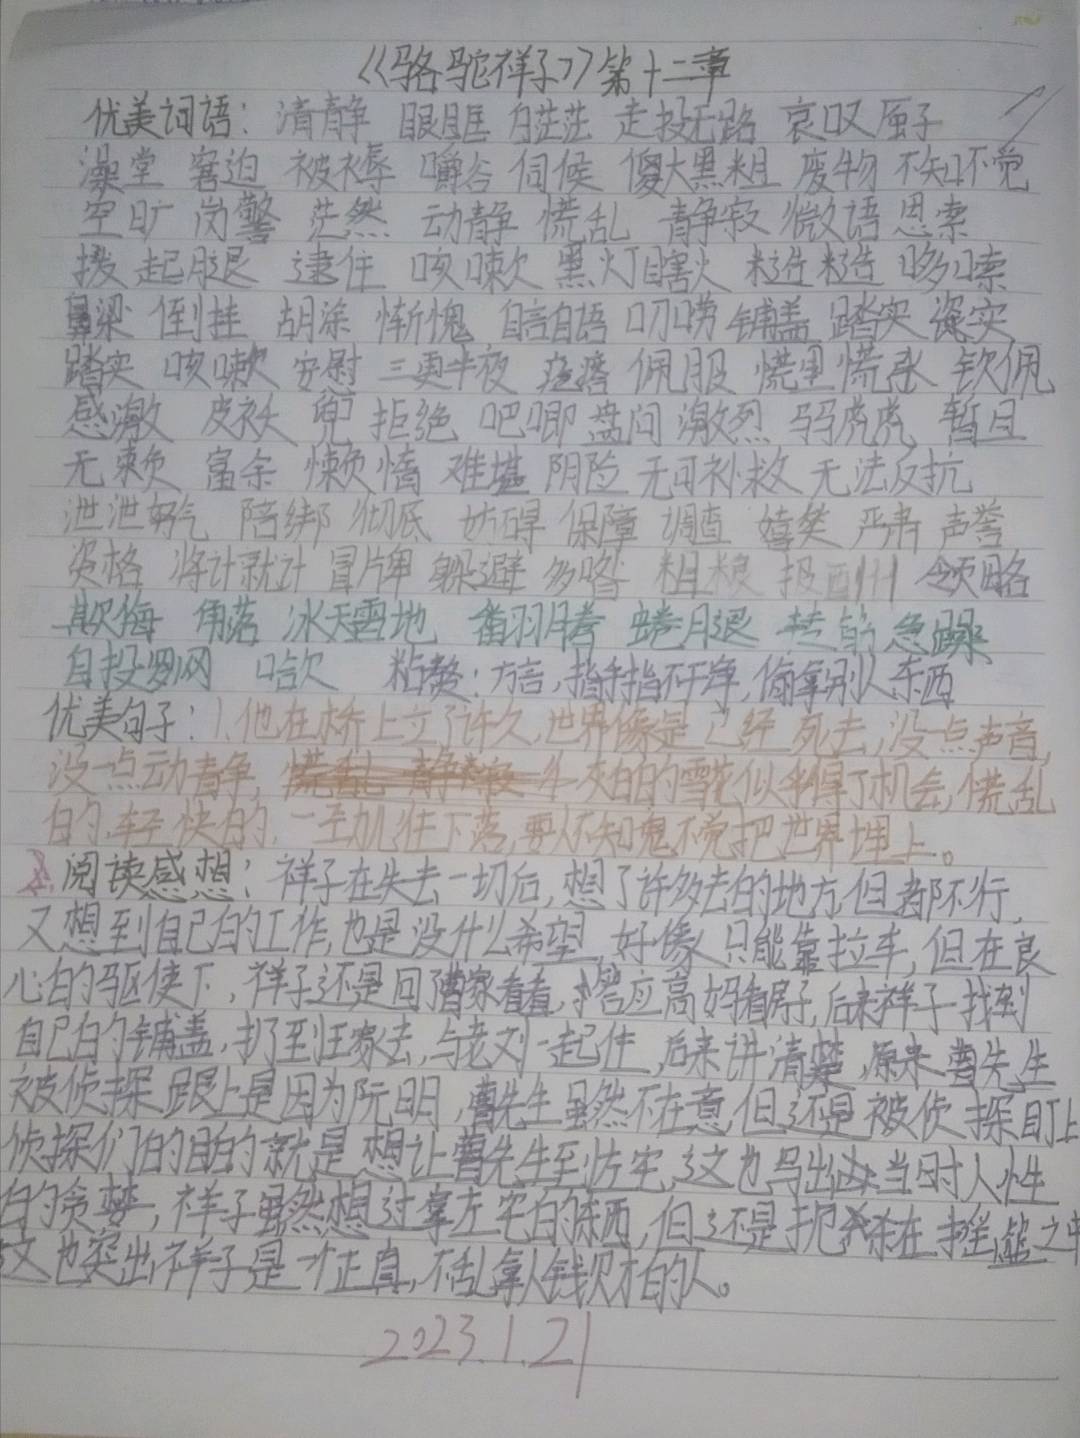 《骆驼祥子》第十二章
优美词语：清静 眼眶 白茫茫 走投无路 哀叹 厦子
澡堂 窘迫 被褥 嚼谷 伺候 傻大黑粗 废物 不知不觉
空旷 岗警 茫然 动静 慌乱 静寂 微语 思索
拨 起腿 逮住 咳嗽 黑灯瞎火 糙糙 哆嗦
鼻梁 倒挂 胡涂 惭愧 自言自语 叨唠 铺盖 踏实 瓷实
踏实 咳嗽 安慰 三更半夜 疙瘩 佩服 慌里慌张 钦佩
感激 皮袄 兜 拒绝 吧唧 盘问 激烈 马马虎虎 暂且
无赖 富余 懒惰 难堪 阴险 无可补救 无法反抗
泄泄气 陪绑 彻底 妨碍 保障 调查 嬉笑 严肃 声誉
资格 将计就计 冒牌 躲避 多咱 粗粮 报酬 领略
欺侮 角落 冰天雪地 翅膀 蜷腿 急躁
自投罗网 粘赘：方言，指手指不干净，偷拿别人东西
优美句子：1.他在桥上立了许久，世界像是已经死去，没一点声音，
没一点动静，灰白的雪花似乎得了机会，慌乱
的，轻快的，一劲儿往下落，要人不知鬼不觉把世界埋上。
阅读感想：祥子在失去一切后，想了许多去的地方，但都不行，
又想到自己的工作，也是没什么希望，好像只能靠拉车，但在良
心的驱使下，祥子还是回了曹家看看，答应高妈看房子，后来祥子找到
自己的铺盖，扔到王家去，与老刘一起住，后来讲清楚，原来曹先生
被侦探跟上是因为阮明，曹先生虽然不在意，但还是被侦探盯上
侦探们的目的就是想让曹先生到牢，这也写出当时人性
的贪婪，祥子虽然想过拿左宅的东西，但还是把之中
这也突出祥子是一个正直，不乱拿人钱财的人。
2023.1.21